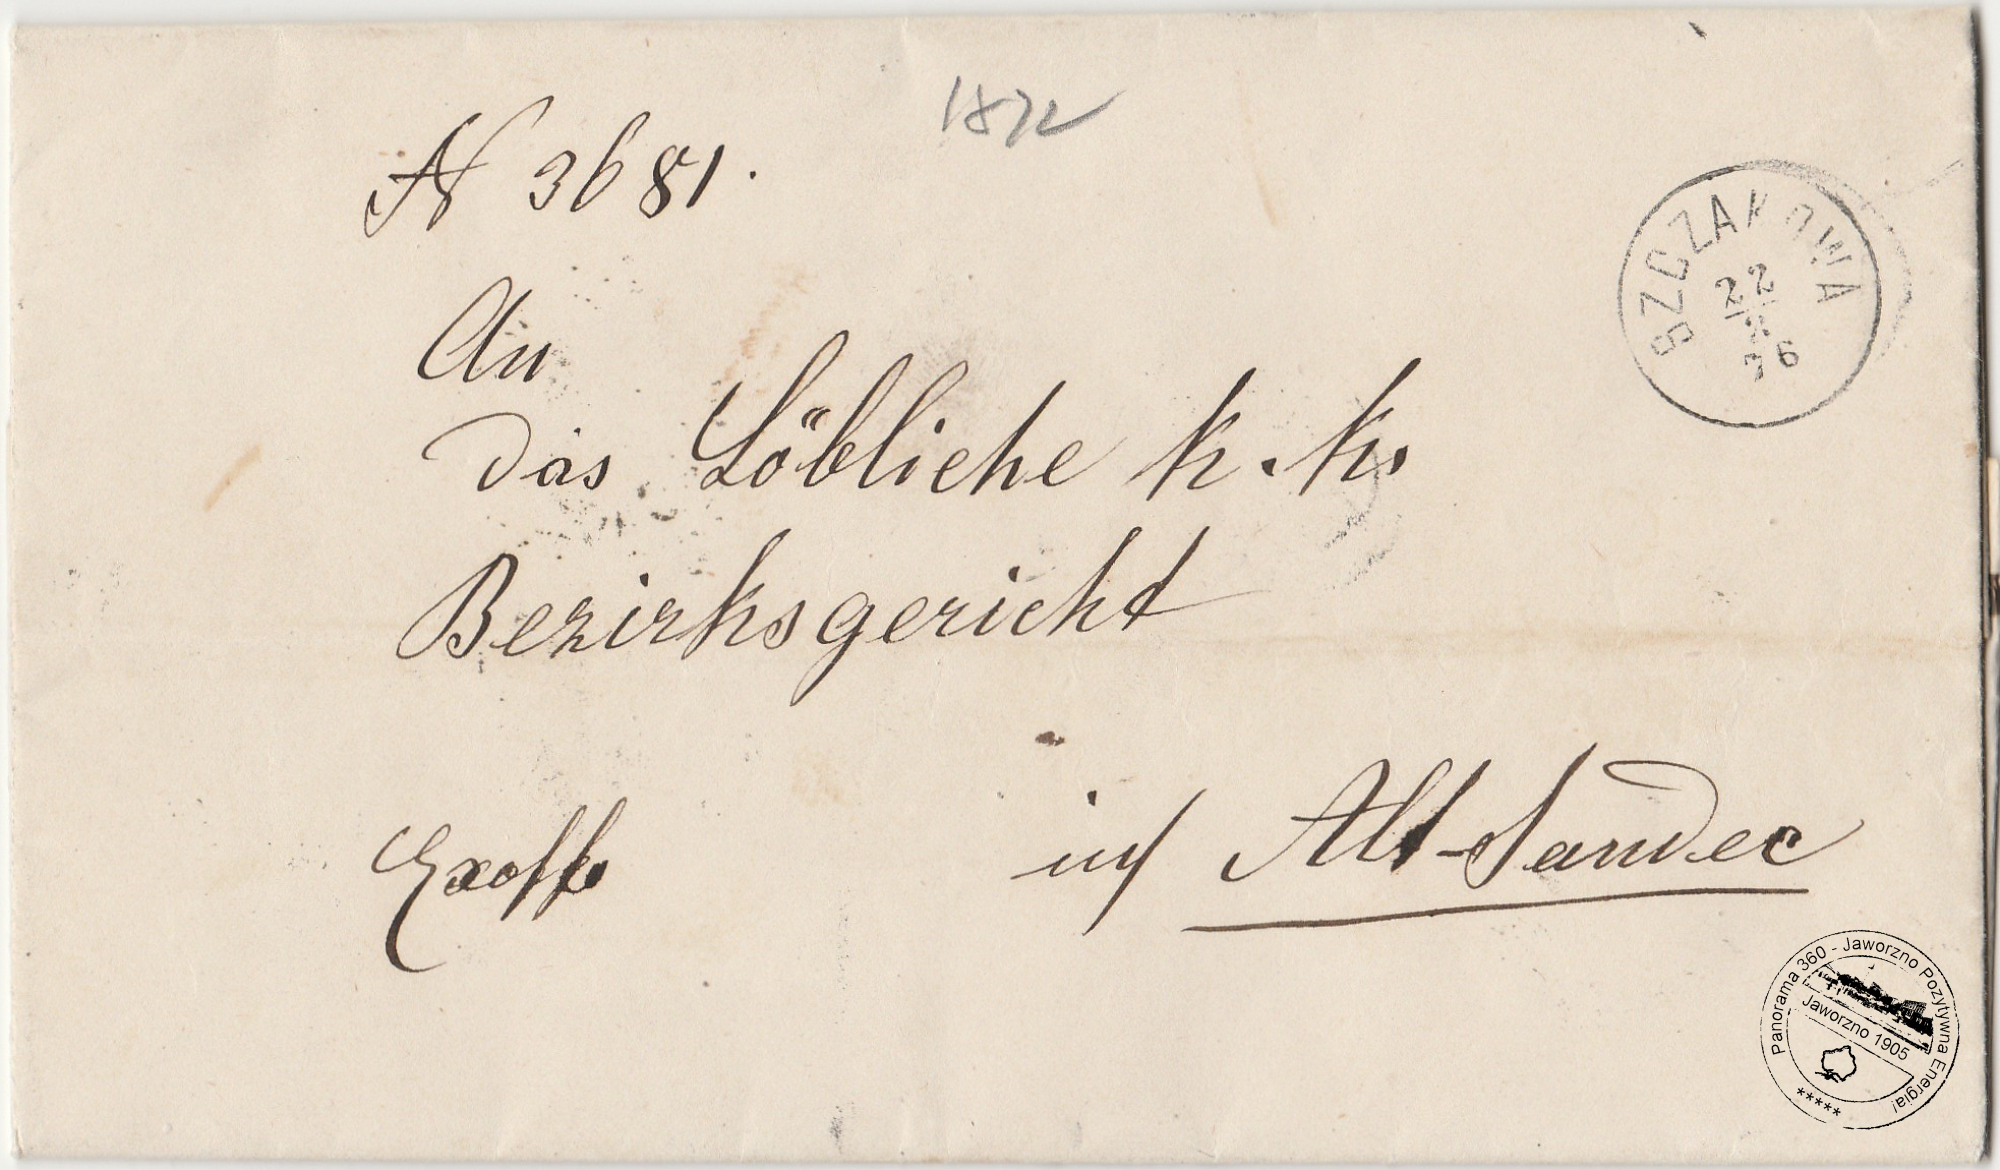 1872
№ 3681.
SZCZAKOWA
22
76
An
das Löbliche k. k.
Bezirksgericht
Exoffo
in Alt-Sandec
Panorama 360 - Jaworzno Pozytywna Energia!
Jaworzno 1905
*****